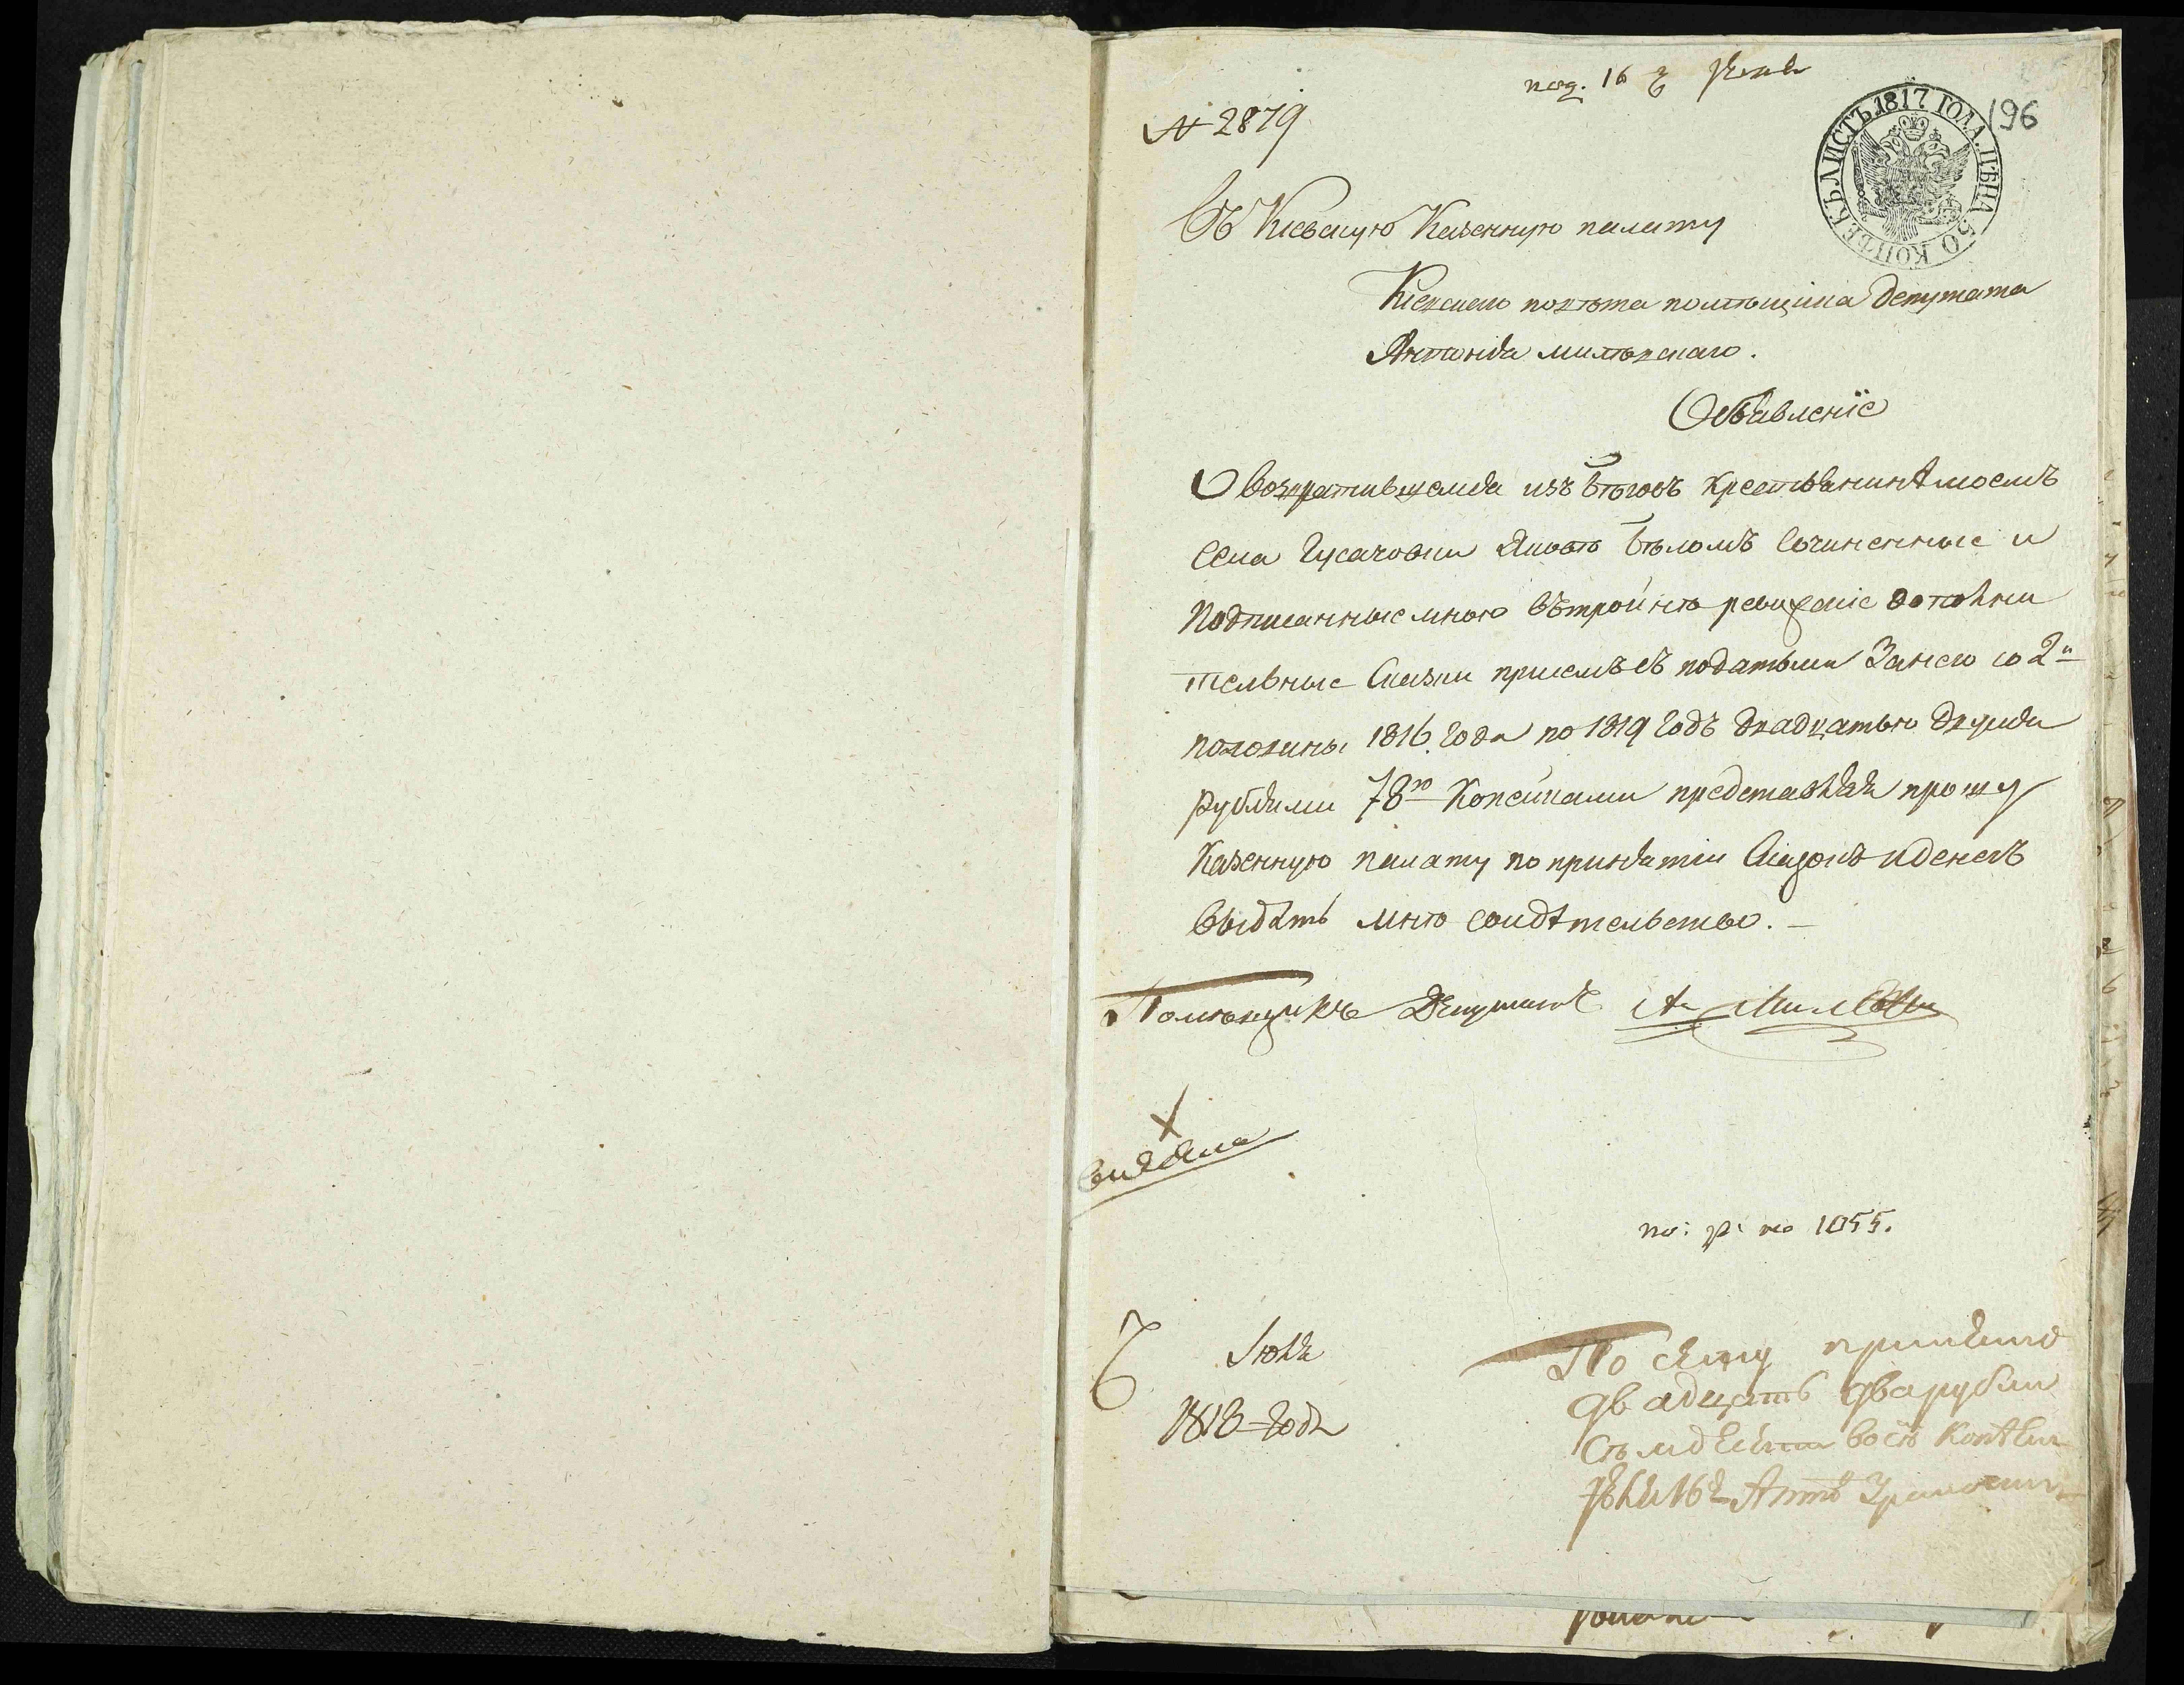 под. 16
№ 2879
196
КЪ ЛИСТЪ 1817 ГОДА. ЦѢНА 50 КОПѢЕКЪ
Въ Киевскую Казенную палату
Киевского повѣта помѣщика депутата
Антонія милѣвскаго.
Объявленіе
О возвратившемся изъ бѣговъ крестьянинѣ моемъ
села Гусачовки Яковѣ Бѣломъ сочиненные и
подписанные мною въ тройнѣ ревизскіе дополни
тельные Сказки приемъ съ податьми За него со 2й
половины 1816 года по 1819 годъ двадцатью двумя
рублями 78ю Копейками представляя прошу
Казенную палату по принятіи Сказокъ и денегъ
выдать мнѣ свидѣтельство. —
Помѣщикъ Депутатъ А
по: р: № 1055.
Іюля
1818 года
По сему принято
двадцать два рубли
семдесятъ восѣ копѣек